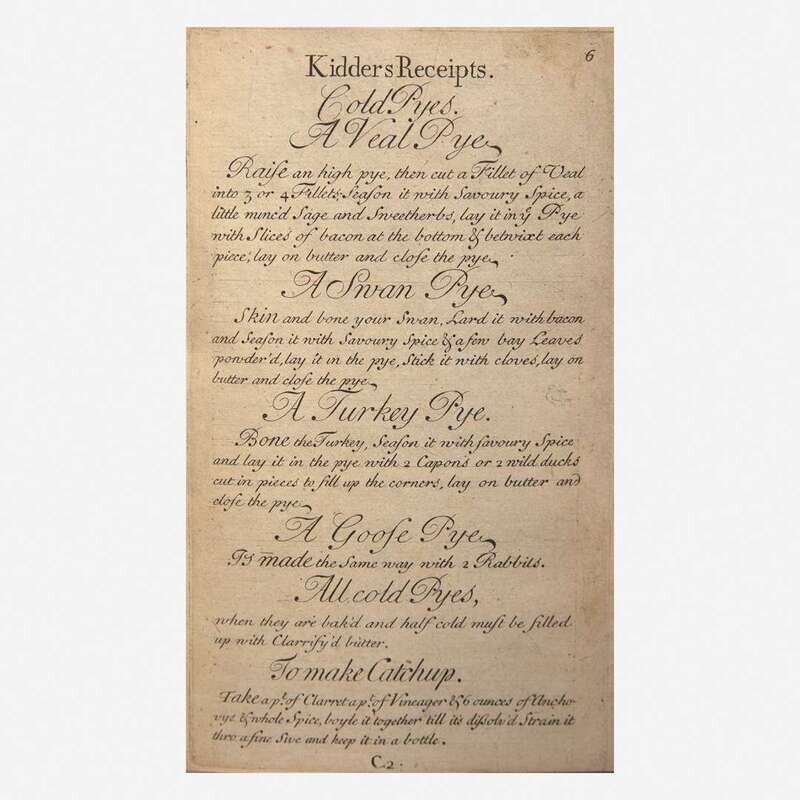 6
Kidders Receipts.
Cold Pyes.
A Veal Pye
Raiſe an high pye, then cut a Fillet of Veal
into 3 or 4 Fillets, Seaſon it with Savoury Spice, a
little minc'd Sage and Sweetherbs, lay it in yͤ Pye
with Slices of bacon at the bottom & betwixt each
piece, lay on butter and cloſe the pye
A Swan Pye
Skin and bone your Swan, Lard it with bacon
and Seaſon it with Savoury Spice & a few bay Leaves
powder'd, lay it in the pye, Stick it with cloves, lay on
butter and cloſe the pye
A Turkey Pye.
Bone the Turkey, Seaſon it with ſavoury Spice
and lay it in the pye with 2 Capons or 2 wild ducks
cut in pieces to fill up the corners, lay on butter and
cloſe the pye
A Gooſe Pye
Is made the Same way with 2 Rabbits.
All cold Pyes,
when they are bak'd and half cold muſt be filled
up with Clarrify'd butter.
To make Catchup.
Take a pᵗ. of Clarret a pᵗ. of Vineager & 6 ounces of Ancho-
vys & whole Spice, boyle it together till its diſſolv'd Strain it
thro a fine Sive and keep it in a bottle.
C.2.